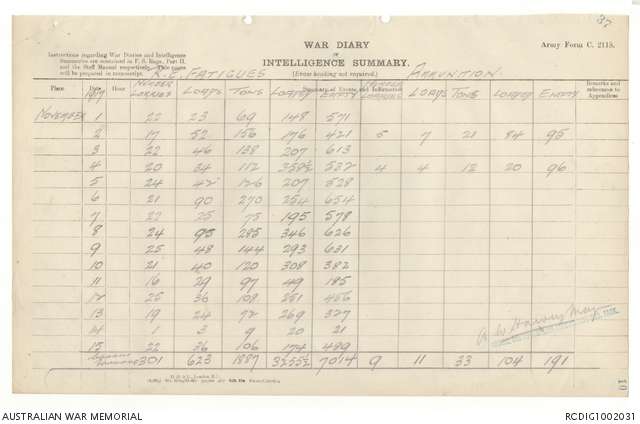 37
WAR DIARY
or
INTELLIGENCE SUMMARY.
(Erase heading not required.)
Army Form C. 2118.
Instructions regarding War Diaries and Intelligence
Summaries are contained in F. S. Regs., Part II.
and the Staff Manual respectively. Title pages
will be prepared in manuscript.
R.E. FATIGUES AMMUNITION.
Place Date Hour Summary of Events and Information Remarks and references to Appendices
1917 NUMBER LORRIES LOADS TONS LOADED EMPTY NUMBER LORRIES LOADS TONS LOADED EMPTY
NOVEMBER 1 22 23 69 148 571
2 17 52 156 176 421 5 7 21 84 95
3 22 46 138 207 613
4 20 34 112 358½ 532 4 4 12 20 96
5 24 42 126 207 528
6 21 90 270 254 654
7 22 25 75 195 578
8 24 95 285 346 626
9 25 48 144 293 631
10 21 40 120 308 382
11 16 29 97 49 185
12 25 36 108 251 466
13 19 24 72 269 327
14 1 3 9 20 21
15 22 36 106 174 499
301 623 1887 3255½ 7014 9 11 33 104 191
AUSTRALIAN WAR MEMORIAL
RCDIG1002031